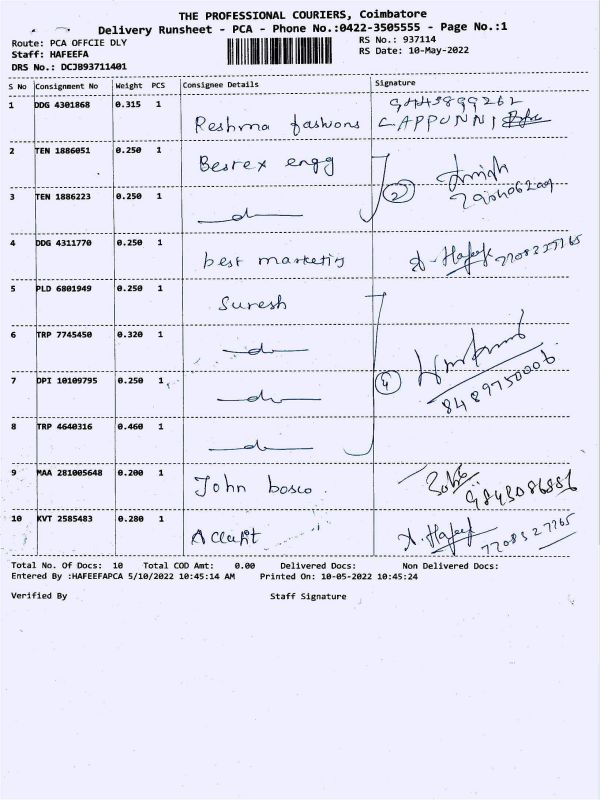 THE PROFESSIONAL COURIERS, Coimbatore
Delivery Runsheet - PCA - Phone No.:0422-3505555 - Page No.:1
Route: PCA OFFCIE DLY
Staff: HAFEEFA
DRS No.: DCJB93711401
RS No.: 937114
RS Date: 10-May-2022
S No Consignment No Weight PCS Consignee Details Signature
1 DDG 4301868 0.315 1 Reshma fashions CAPPUNNI
2 TEN 1886051 0.250 1 Bestex engg
3 TEN 1886223 0.250 1 do 2
4 DDG 4311770 0.250 1 best marketing A-Hafeef 7708327765
5 PLD 6801949 0.250 1 Suresh
6 TRP 7745450 0.320 1 do
7 DPI 10109795 0.250 1 do 4 8489750006
8 TRP 4640316 0.460 1 do
9 MAA 281005648 0.200 1 John bosco.
10 KVT 2585483 0.280 1 A. Hafeef 7708327765
Total No. Of Docs: 10 Total COD Amt: 0.00 Delivered Docs: Non Delivered Docs:
Entered By :HAFEEFAPCA 5/10/2022 10:45:14 AM Printed On: 10-05-2022 10:45:24
Verified By Staff Signature